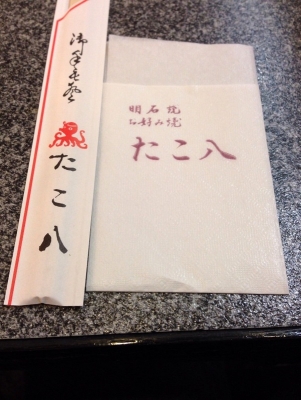 御手毛登
たこ八
明石焼
お好み焼
たこ八